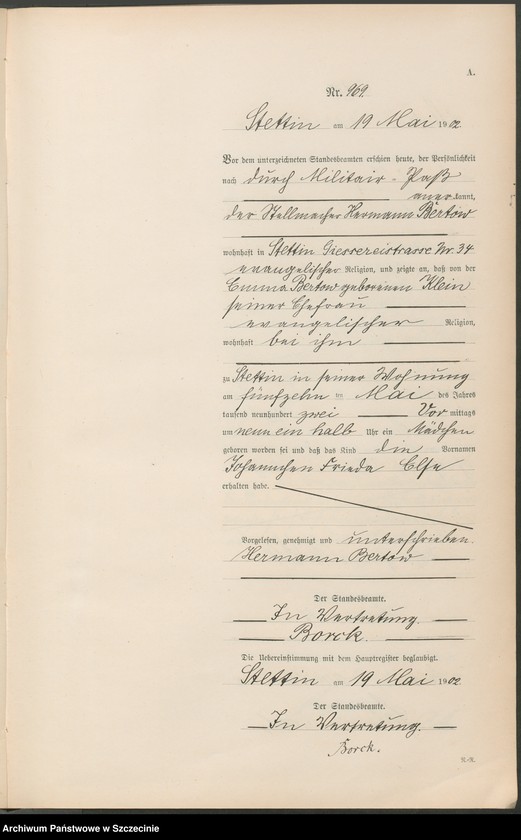 A.
Nr. 969.
Stettin am 19 Mai 1902
Vor dem unterzeichneten Standesbeamten erschien heute, der Persönlichkeit
nach durch Militair-Paß
anerkannt,
der Stellmacher Hermann Bertow
wohnhaft in Stettin Giessereistrasse Nr. 34
evangelischer Religion, und zeigte an, daß von der
Emma Bertow geborenen Klein
seiner Ehefrau
evangelischer Religion,
wohnhaft bei ihm
zu Stettin in seiner Wohnung
am fünfzehn ten Mai des Jahres
tausend neunhundert zwei Vor mittags
um neun ein halb Uhr ein Mädchen
geboren worden sei und daß das Kind die Vornamen
Johannchen Frieda Else
erhalten habe.
Vorgelesen, genehmigt und unterschrieben.
Hermann Bertow
Der Standesbeamte.
In Vertretung.
Borck.
Die Uebereinstimmung mit dem Hauptregister beglaubigt.
Stettin am 19 Mai 1902
Der Standesbeamte.
In Vertretung.
Borck.
Archiwum Państwowe w Szczecinie